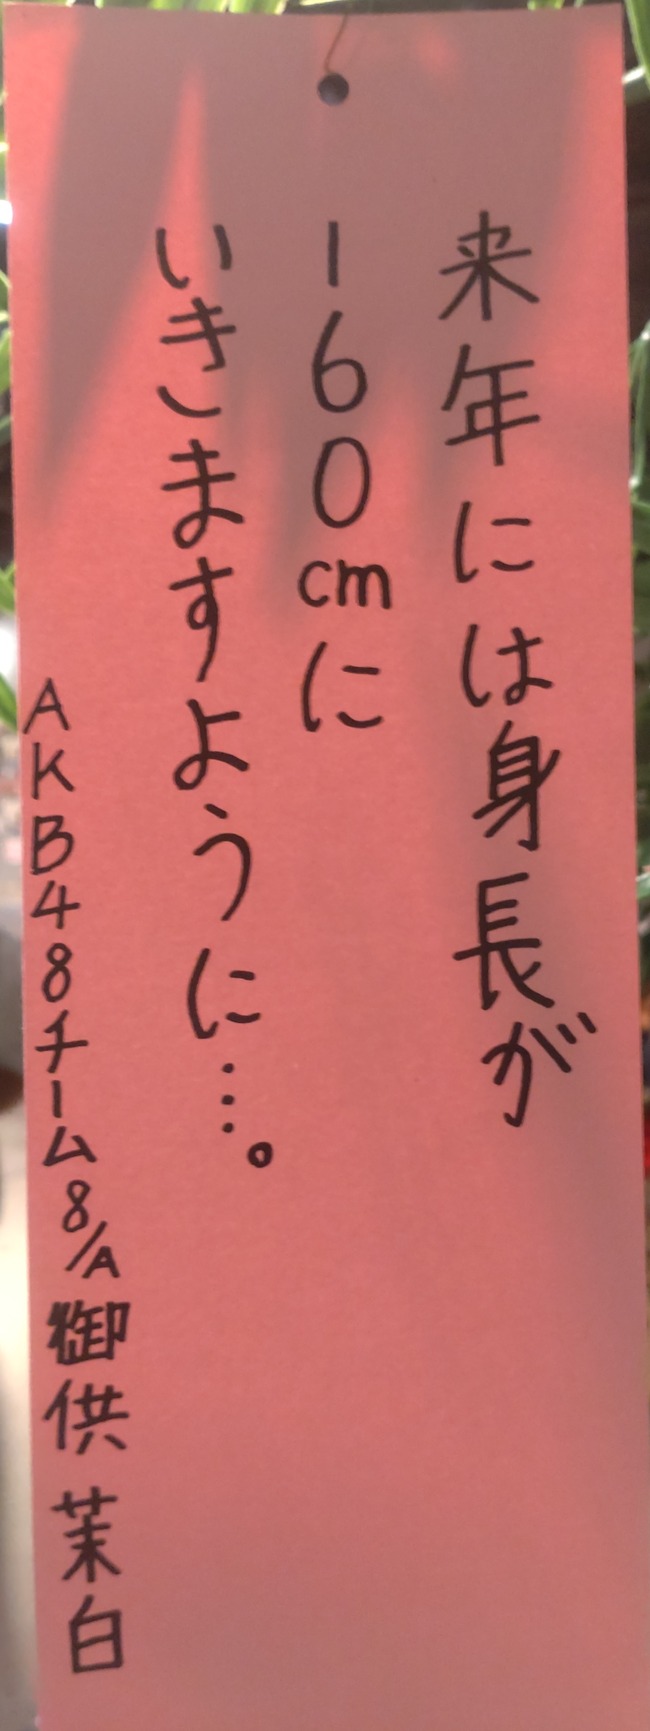 来年には身長が
160cmに
いきますように…。
AKB48チーム8/A御供茉白